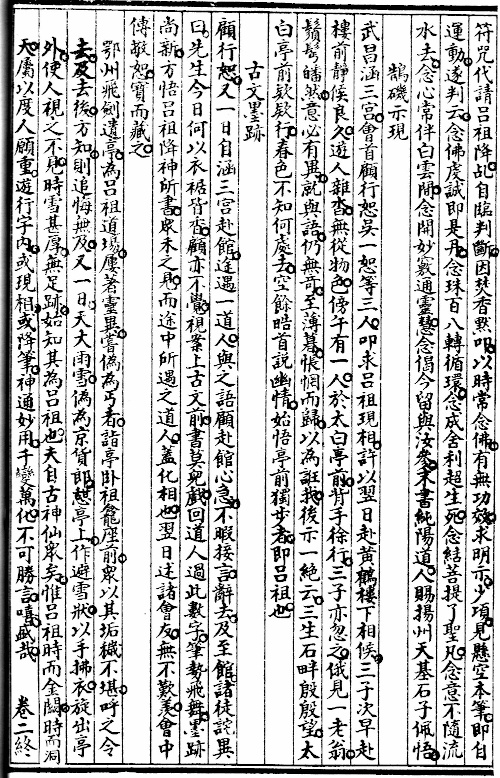 符咒代請呂祖降乩自臨判斷因焚香默叩以時常念佛有無功效求明示少項見懸空本筆即自
運動遂判云念佛虔誠即是丹念珠百八轉循環念成舍利超生死念結菩提了聖凡念意不隨流
水去念心常伴白雲閒念開妙竅通靈慧念偈今留與汝參末書純陽道人賜揚州天基石子佩悟
鵠磯示現
武昌涵三宮會首顧行恕吳一恕等三人叩求呂祖現相許以翌日赴黃鶴樓下相候三子次早赴
樓前靜候良久遊人雜沓無從物色傍午有一人於太白亭前背手徐行三子亦忽之俄見一老翁
鬚髩皤然意必有異就與語仍無奇至薄暮悵惘而歸以為誑我後示一絕云三生石畔殷殷望太
白亭前欵欵行春色不知何處去空餘皓首說幽情始悟亭前獨步者即呂祖也
古文墨跡
顧行恕又一日自涵三宮赴館逢遇一道人與之語顧赴館心急不暇接言辭去及至館諸徒詫異
曰先生今日何以衣裾皆香顧亦不覺視案上古文前書莫兒戲回道人過此數字筆勢飛舞墨跡
尚新方悟呂祖降神所書衆未之見而途中所遇之道人蓋化相也翌日述諸會友無不歎羨會中
傅敏恕寶而藏之
鄂州飛劍遺亭為呂祖道場屢著靈異嘗偽為丐者詣亭臥祖龕座前衆以其垢穢不堪呼之令
去及去後方知則追悔無及又一日天大雨雪偽為京貨郎憩亭上作避雪狀以手拂衣旋出亭
外使人視之不見時雪甚厚無足跡始知其為呂祖也夫自古神仙衆矣惟呂祖時而金闕時而洞
天屬以度人願重遊行宇內或現相或降筆神通妙用千變萬化不可勝言嘻盛哉
卷二終